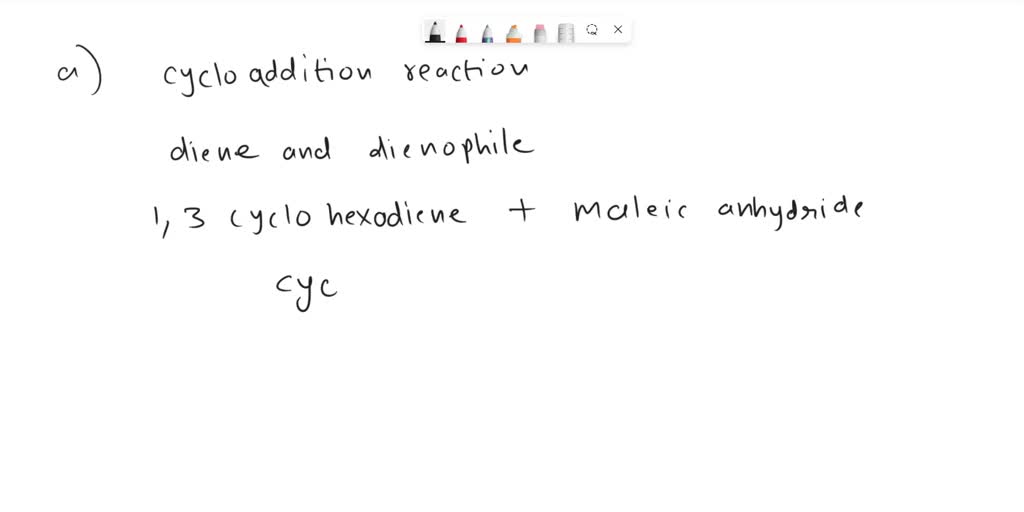 a) cyclo addition reaction
diene and dienophile
1,3 cyclo hexodiene + maleic anhydride
cyc